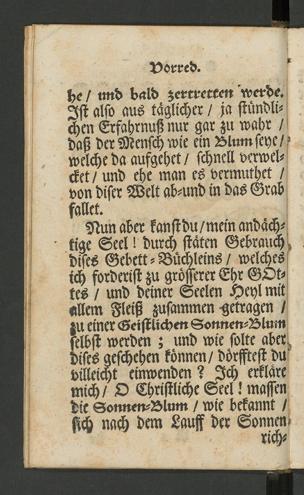 Vorred.
he / und bald zertretten werde.
Ist also aus täglicher / ja stündli-
chen Erfahrnuß nur gar zu wahr /
daß der Mensch wie ein Blum seye /
welche da aufgehet / schnell verwel-
cket / und ehe man es vermuthet /
von diser Welt ab-und in das Grab
fallet.
Nun aber kanst du / mein andäch-
tige Seel ! durch stäten Gebrauch
dises Gebett-Büchleins / welches
ich forderist zu grösserer Ehr GOt-
tes / und deiner Seelen Heyl mit
allem Fleiß zusammen getragen /
zu einer Geistlichen Sonnen-Blum
selbst werden ; und wie solte aber
dises geschehen können / dörfftest du
villeicht einwenden ? Ich erkläre
mich / O Christliche Seel ! massen
die Sonnen-Blum / wie bekannt /
sich nach dem Lauff der Sonnen
rich-